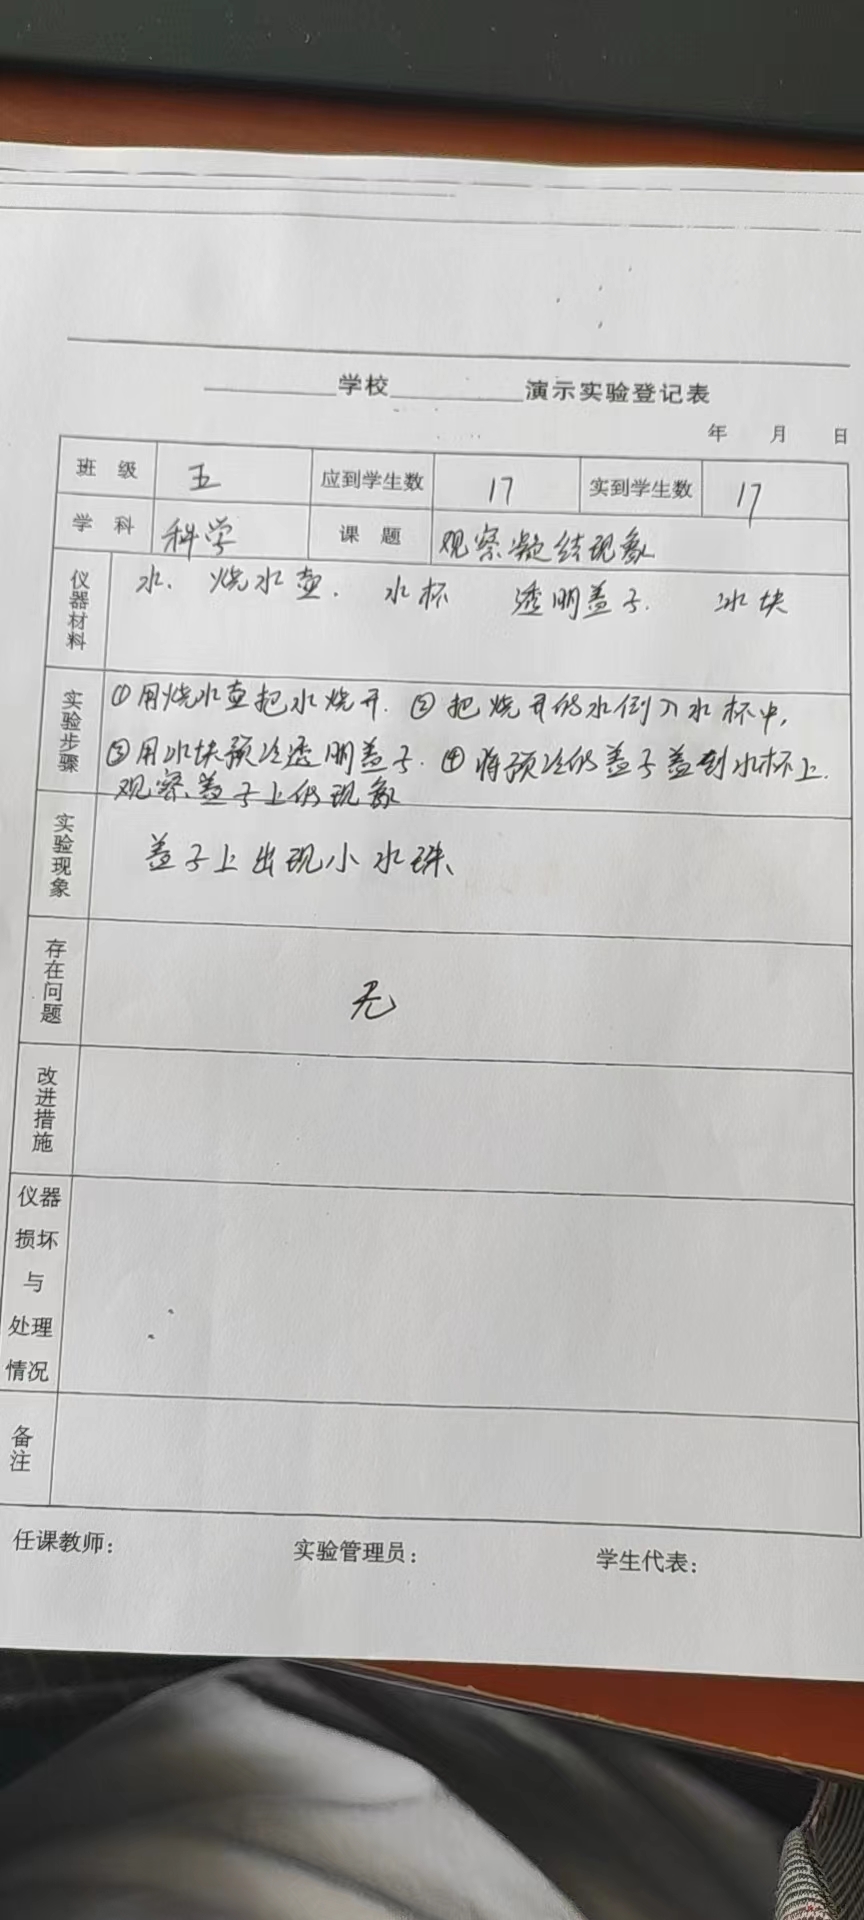 学校 演示实验登记表
年 月 日
班级 五 应到学生数 17 实到学生数 17
学科 科学 课题 观察凝结现象
仪器材料 水、烧水壶. 水杯 透明盖子. 冰块
实验步骤 ①用烧水壶把水烧开. ②把烧开的水倒入水杯中,
③用冰块预冷透明盖子. ④将预冷的盖子盖到水杯上.
观察盖子上的现象
实验现象 盖子上出现小水珠、
存在问题 无
改进措施
仪器
损坏
与
处理
情况
备注
任课教师: 实验管理员: 学生代表: